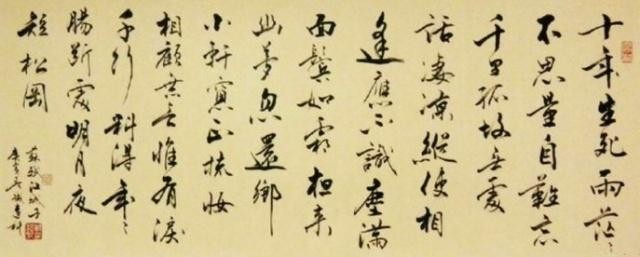 十年生死兩茫々
不思量自難忘
千里孤墳無處
話淒涼縱使相
逢應不識塵滿
面鬢如霜夜来
幽夢忽還鄉
小軒窗正梳妝
相顧無言惟有淚
千行料得年々
腸斷處明月夜
短松岡
蘇軾江城子
庚寅